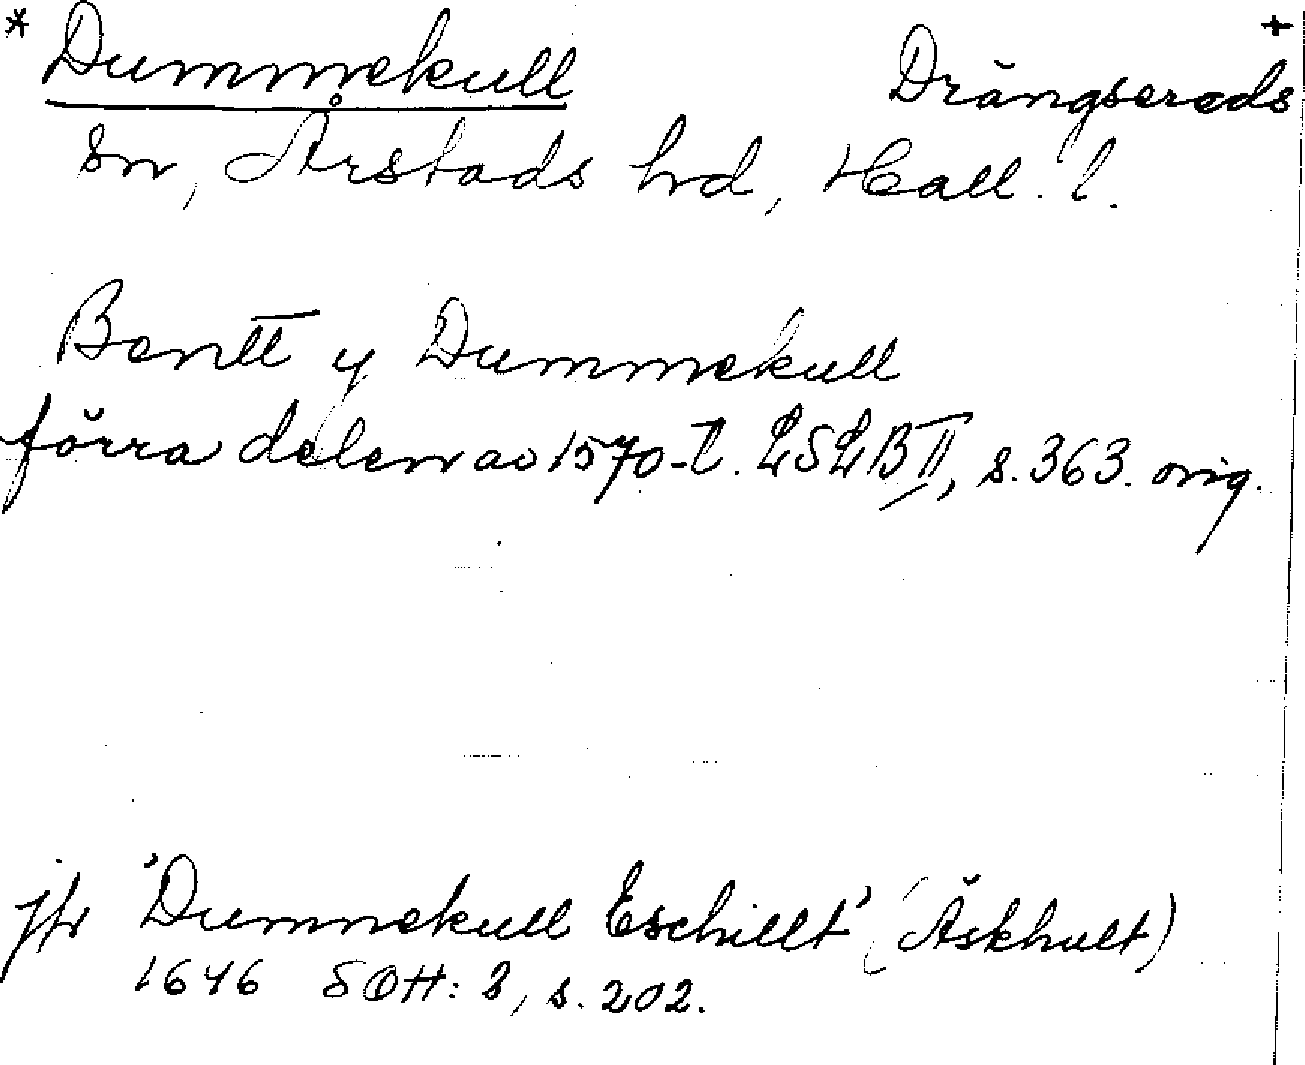 * Dummekull Drängsereds +
sn, Årstads hrd, Hall. l.
Bentt y Dummekull
förra delen av 1570-t. LSLB II, s. 363. orig.
jfr 'Dummekull Eschillt' (Äskhult)
1646 SOH: 3, s. 202.